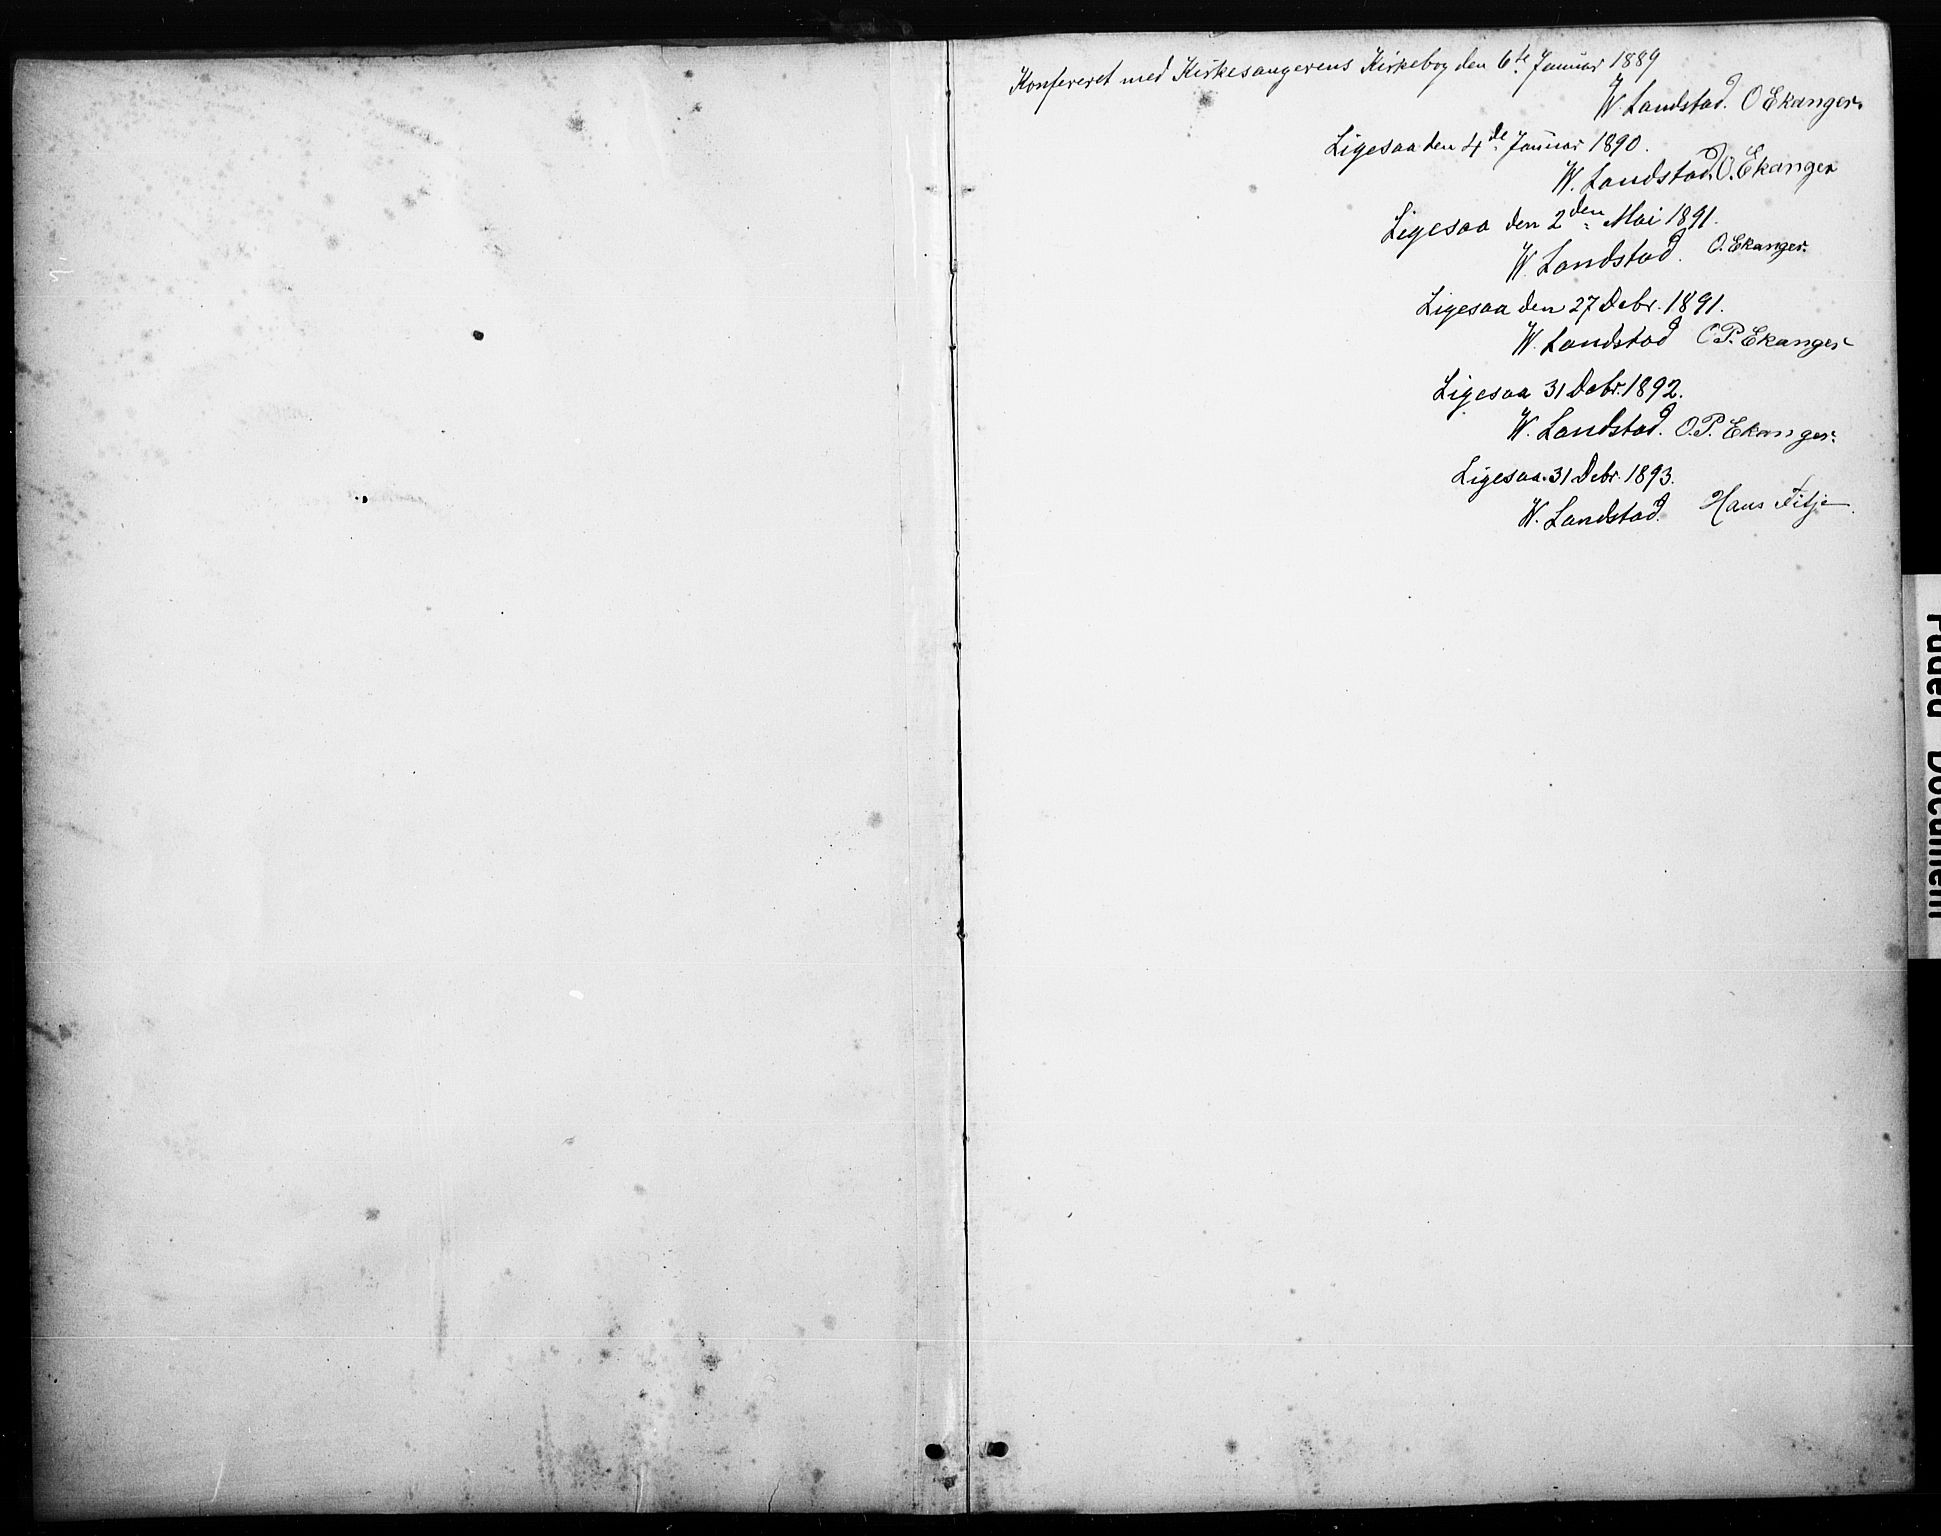 Konfereret med Kirkesangerens Kirkebog den 6te Januar 1889
W. Landstad. O Ekanger.
Ligesaa den 4de Januar 1890.
W. Landstad. O. Ekanger
Ligesaa den 2den Mai 1891.
W. Landstad. O. Ekanger.
Ligesaa den 27 Debr. 1891.
W. Landstad O.P. Ekanger
Ligesaa 31 Debr. 1892.
W. Landstad. O.P. Ekanger.
Ligesaa. 31 Debr. 1893.
W. Landstad. Hans Fitje.
Faded Document